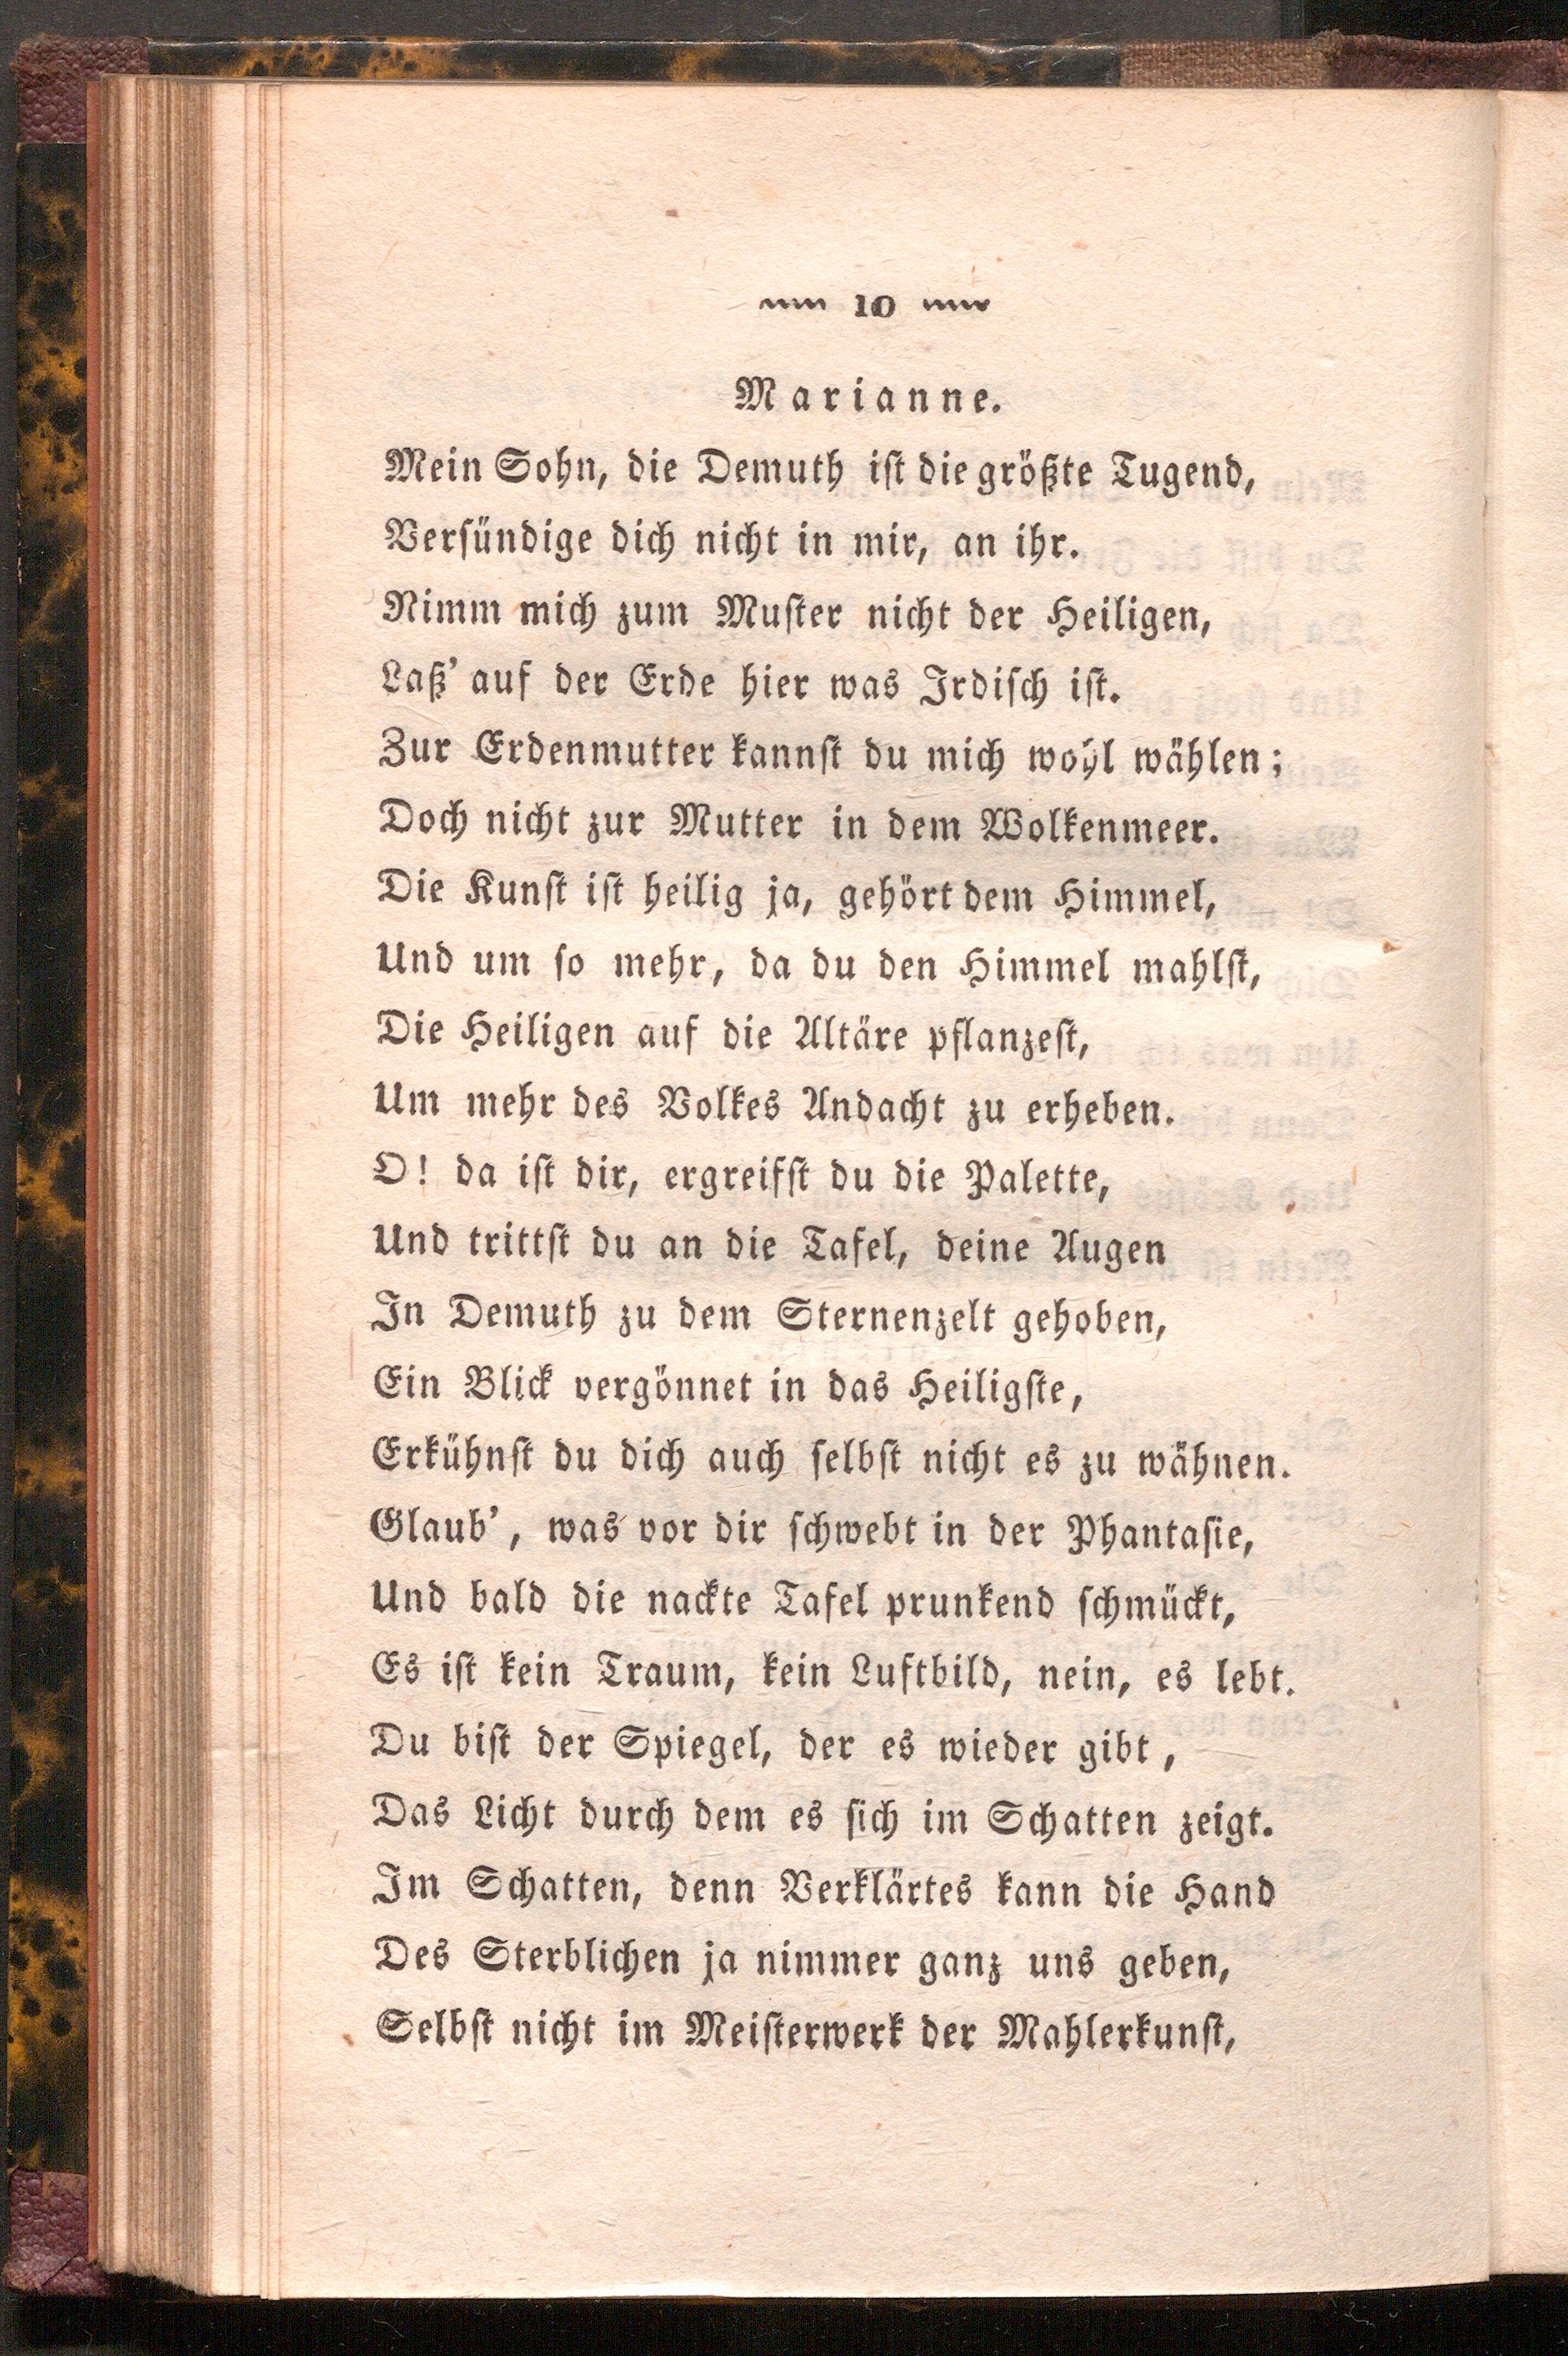 10
Marianne.
Mein Sohn, die Demuth iſt die größte Tugend,
Verſündige dich nicht in mir, an ihr.
Nimm mich zum Muſter nicht der Heiligen,
Laß' auf der Erde hier was Irdiſch iſt.
Zur Erdenmutter kannſt du mich wohl wählen;
Doch nicht zur Mutter in dem Wolkenmeer.
Die Kunſt iſt heilig ja, gehört dem Himmel,
Und um ſo mehr, da du den Himmel mahlſt,
Die Heiligen auf die Altäre pflanzeſt,
Um mehr des Volkes Andacht zu erheben.
O! da iſt dir, ergreifſt du die Palette,
Und trittſt du an die Tafel, deine Augen
In Demuth zu dem Sternenzelt gehoben,
Ein Blick vergönnet in das Heiligſte,
Erkühnſt du dich auch ſelbſt nicht es zu wähnen.
Glaub', was vor dir ſchwebt in der Phantaſie,
Und bald die nackte Tafel prunkend ſchmückt,
Es iſt kein Traum, kein Luftbild, nein, es lebt.
Du biſt der Spiegel, der es wieder gibt,
Das Licht durch dem es ſich im Schatten zeigt.
Im Schatten, denn Verklärtes kann die Hand
Des Sterblichen ja nimmer ganz uns geben,
Selbſt nicht im Meiſterwerk der Mahlerkunſt,